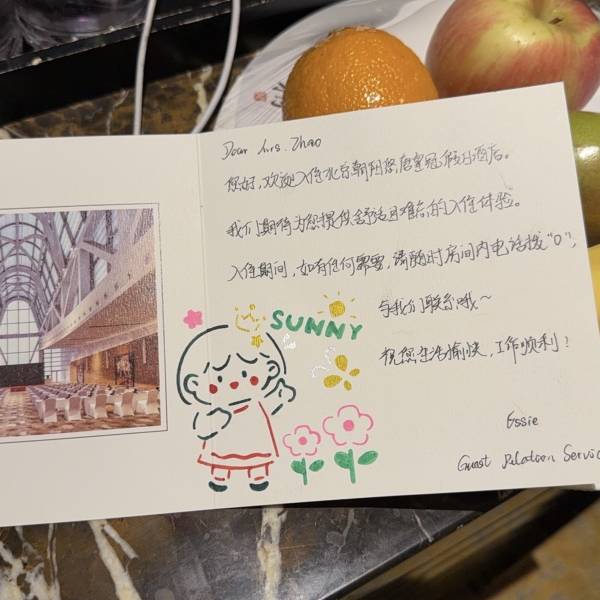 Dear Mrs. Zhao
您好，欢迎入住北京朝阳悠唐皇冠假日酒店。
我们期待为您提供舒适且难忘的入住体验。
入住期间，如有任何需要，请随时房间内电话拨“0”，
与我们联系哦～
祝您生活愉快，工作顺利！
SUNNY
Essie
Guest Relation Servic